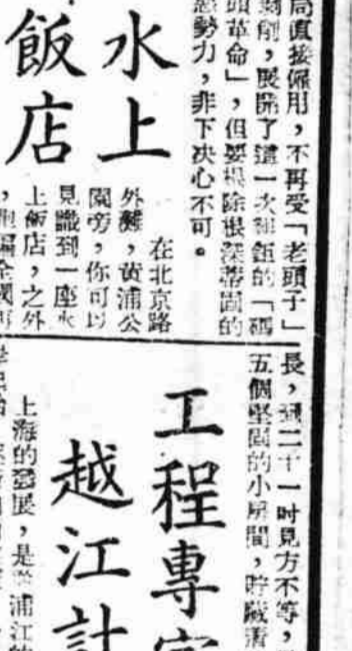 局直接僱用，不再受「老頭子」
剝削，展開了這一次和鈺的「碼
頭革命」，但要根除根深蒂固的
惡勢力，非下决心不可。
水上
飯店
在北京路
外灘，黄浦公
園旁，你可以
見識到一座水
上飯店，之外
長，二十一時見方不等，
五個堅固的小房間，貯藏
工程專家
越江計
上海的發展，是